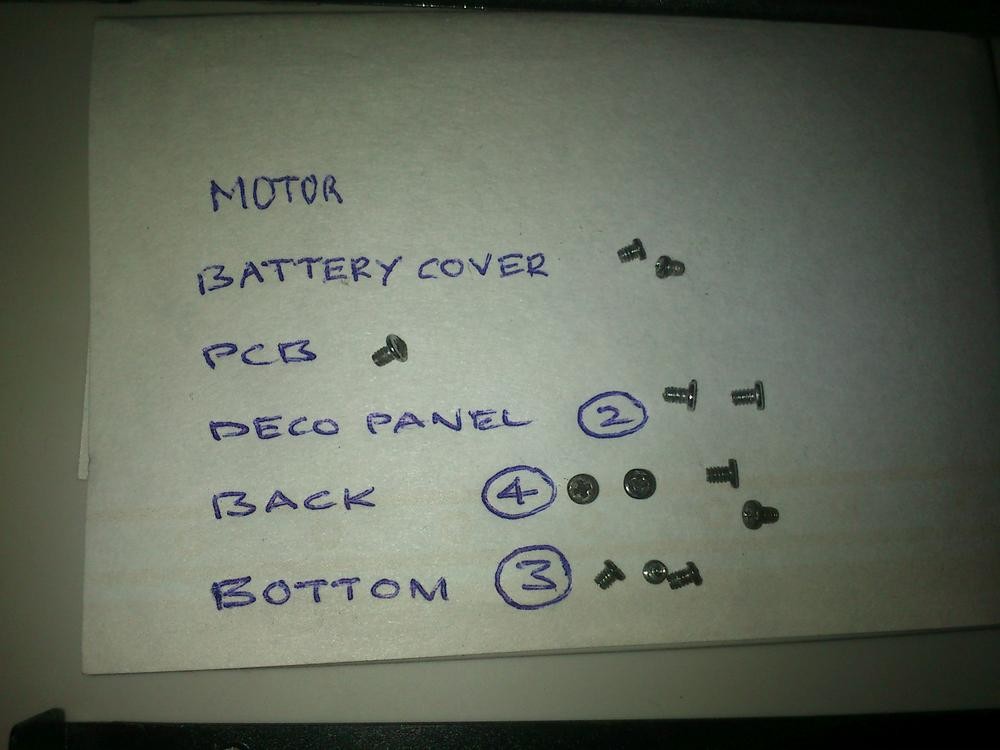 MOTOR
BATTERY COVER
PCB
DECO PANEL 2
BACK 4
BOTTOM 3